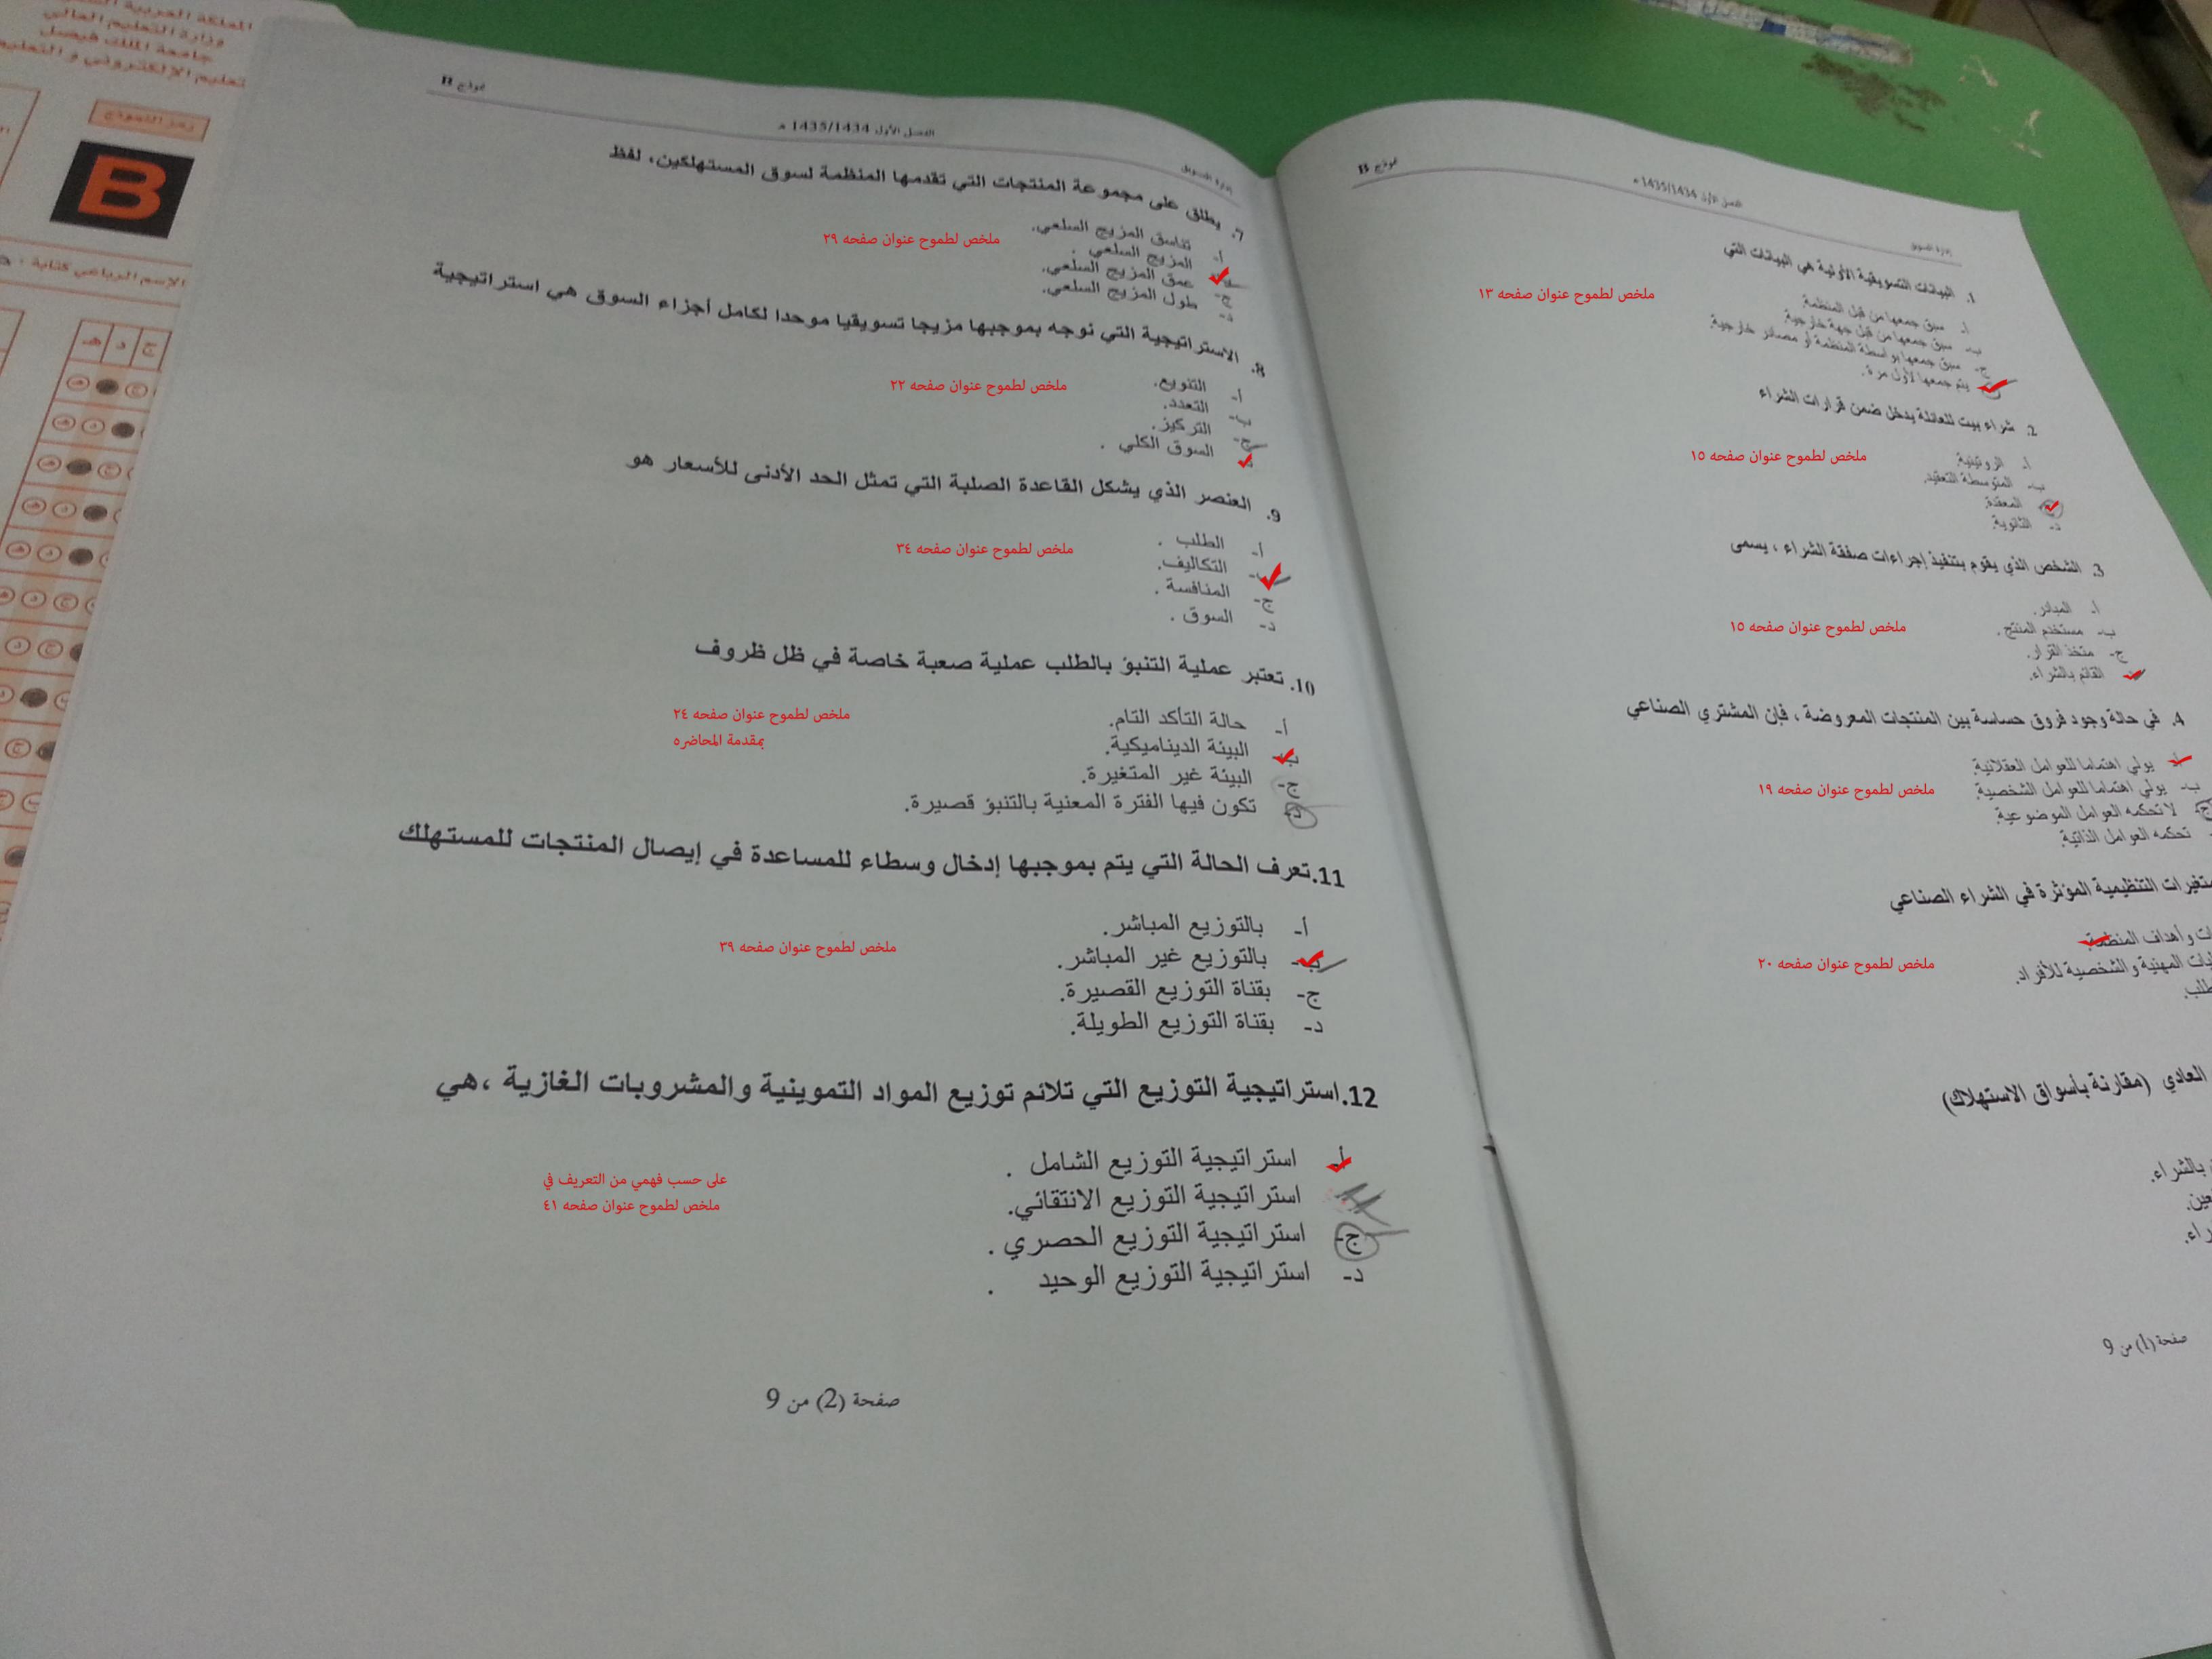 نموذج B
الفصل الأول 1435/1434 هـ
إدارة التسويق
1. البيانات التسويقية الأولية هي البيانات التي
أ- سبق جمعها من قبل المنظمة.
ب- سبق جمعها من قبل جهة خارجية.
ج- سبق جمعها بواسطة المنظمة أو مصادر خارجية.
يتم جمعها لأول مرة.
ملخص لطموح عنوان صفحه ١٣
2. شراء بيت للعائلة يدخل ضمن قرارات الشراء
أ- الروتينية.
ب- المتوسطة التعقيد.
المعقدة.
د- الثانوية.
ملخص لطموح عنوان صفحه ١٥
3. الشخص الذي يقوم بتنفيذ إجراءات صفقة الشراء ، يسمى
أ- المبادر.
ب- مستخدم المنتج .
ج- متخذ القرار.
القائم بالشراء.
ملخص لطموح عنوان صفحه ١٥
4. في حالة وجود فروق حساسة بين المنتجات المعروضة ، فإن المشتري الصناعي
أ- يولي اهتماما للعوامل العقلانية.
ب- يولي اهتماما للعوامل الشخصية.
ج- لا تحكمه العوامل الموضوعية.
تحكمه العوامل الذاتية.
ملخص لطموح عنوان صفحه ١٩
التنظيمية المؤثرة في الشراء الصناعي
وأهداف المنظمة.
المهنية والشخصية للأفراد.
ملخص لطموح عنوان صفحه ٢٠
العادي (مقارنة بأسواق الاستهلاك)
بالشراء.
صفحة (1) من 9
نموذج B
الفصل الأول 1435/1434 هـ
إدارة التسويق
7. يطلق على مجموعة المنتجات التي تقدمها المنظمة لسوق المستهلكين، لفظ
أ- تناسق المزيج السلعي.
المزيج السلعي .
ج- عمق المزيج السلعي.
د- طول المزيج السلعي.
ملخص لطموح عنوان صفحه ٢٩
8. الاستراتيجية التي نوجه بموجبها مزيجا تسويقيا موحدا لكامل أجزاء السوق هي استراتيجية
أ- التنويع.
ب- التعدد.
ج- التركيز.
السوق الكلي .
ملخص لطموح عنوان صفحه ٢٢
9. العنصر الذي يشكل القاعدة الصلبة التي تمثل الحد الأدنى للأسعار هو
أ- الطلب .
ب- التكاليف.
ج- المنافسة .
د- السوق .
ملخص لطموح عنوان صفحه ٣٤
10. تعتبر عملية التنبؤ بالطلب عملية صعبة خاصة في ظل ظروف
أ- حالة التأكد التام.
ب- البيئة الديناميكية.
ج- البيئة غير المتغيرة.
د- تكون فيها الفترة المعنية بالتنبؤ قصيرة.
ملخص لطموح عنوان صفحه ٢٤
بمقدمة المحاضره
11. تعرف الحالة التي يتم بموجبها إدخال وسطاء للمساعدة في إيصال المنتجات للمستهلك
أ- بالتوزيع المباشر.
ب- بالتوزيع غير المباشر.
ج- بقناة التوزيع القصيرة.
د- بقناة التوزيع الطويلة.
ملخص لطموح عنوان صفحه ٣٩
12. استراتيجية التوزيع التي تلائم توزيع المواد التموينية والمشروبات الغازية ،هي
أ- استراتيجية التوزيع الشامل .
استراتيجية التوزيع الانتقائي.
ج- استراتيجية التوزيع الحصري .
د- استراتيجية التوزيع الوحيد .
على حسب فهمي من التعريف في
ملخص لطموح عنوان صفحه ٤١
صفحة (2) من 9
وزارة التعليم العالي
جامعة الملك فيصل
رمز النموذج
B
الإسم الرباعي كتابة :
ج د هـ